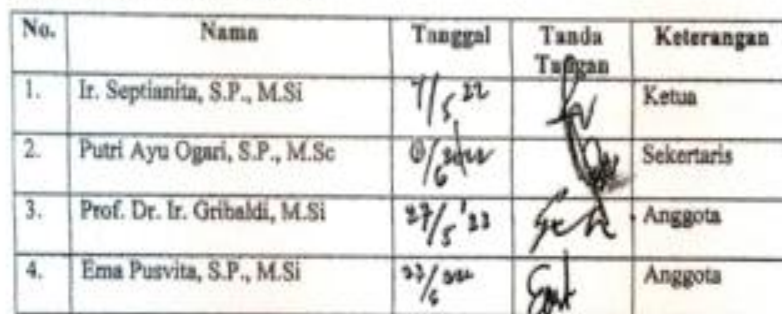 No. Nama Tanggal Tanda Tangan Keterangan
1. Ir. Septianita, S.P., M.Si Ketua
2. Putri Ayu Ogari, S.P., M.Sc Sekertaris
3. Prof. Dr. Ir. Gribaldi, M.Si 27/5 Anggota
4. Ema Pusvita, S.P., M.Si Anggota